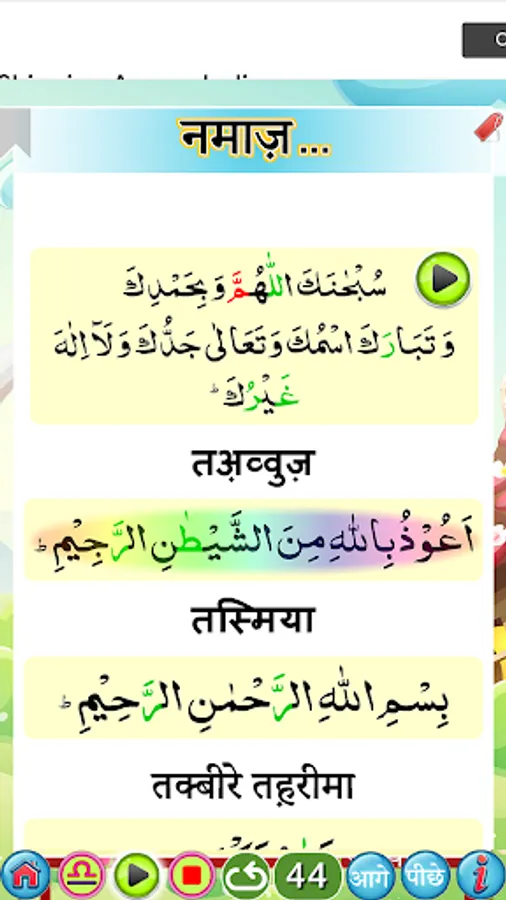 नमाज़ ...
سُبْحٰنَكَ اللّٰهُمَّ وَبِحَمْدِكَ
وَتَبَارَكَ اسْمُكَ وَتَعَالٰی جَدُّكَ وَلَآ اِلٰهَ
غَيْرُكَ ؕ
तअ़व्वुज़
اَعُوْذُ بِاللّٰهِ مِنَ الشَّيْطٰنِ الرَّجِيْمِ ؕ
तस्मिया
بِسْمِ اللّٰهِ الرَّحْمٰنِ الرَّحِيْمِ ؕ
तक्बीरे तह़रीमा
44 आगे पीछे i